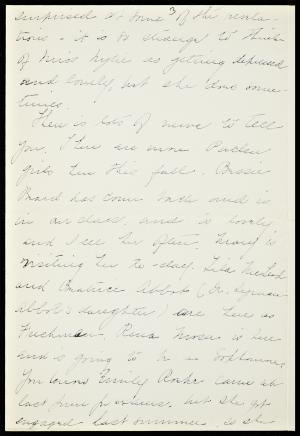 surprised at some of the revela-
3
tions - it is so strange to think
of Miss Wylie as getting depressed
and lonely, but she does some-
times.
There is lots of news to tell
you. There are more Packer
girls here this fall. Bessie
Beard has come back and is
in our class, and is lovely
and I see her often. is
visiting her to-day. Lila
and Beatrice Abbott (Dr. Lyman
Abbott's daughter) are here as
Freshmen. Rena is here
and is going to be a Sophomore.
You know Emily came at
last from previous, but she got
engaged last summer, so she